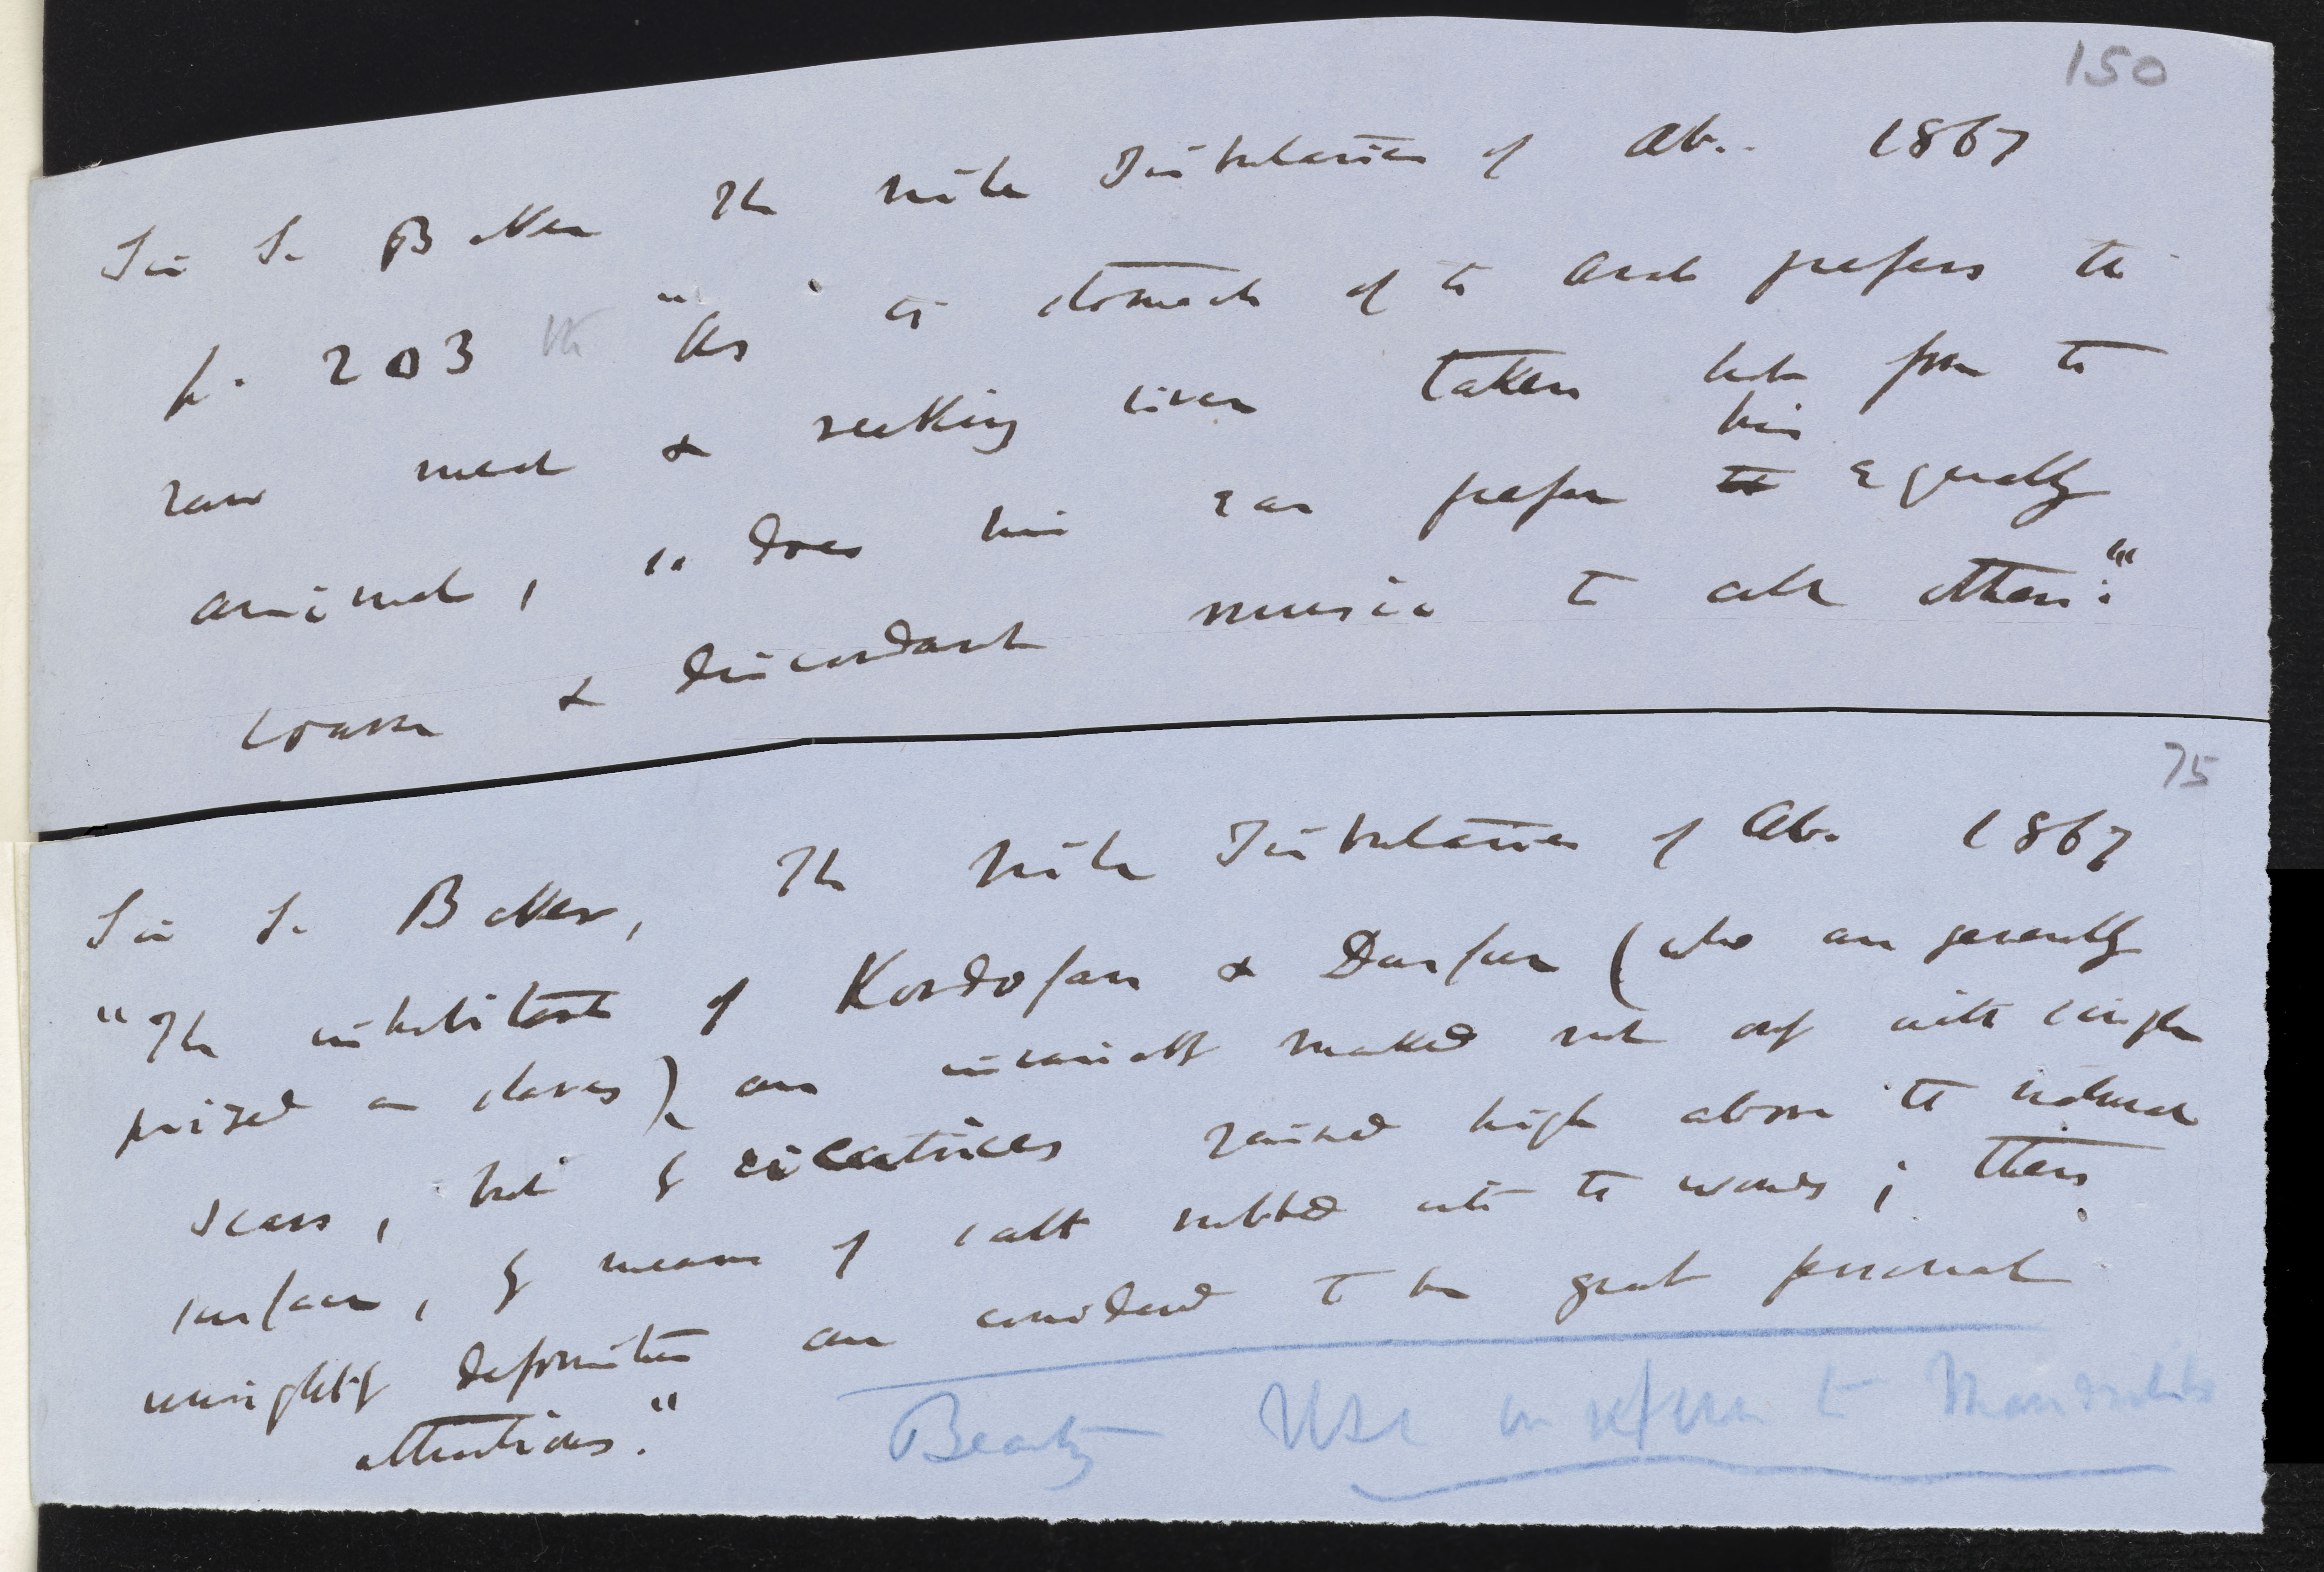 150
Sir S. Baker The Nile Tributaries of Ab.. 1867
p. 203 "As the stomach of the Arab prefers the
raw meat & reeking liver taken hot from the
animal, "does his ear prefer the his equally
coarse & discordant music to all others."
75
Sir S. Baker, The Nile Tributaries of Ab. 1867
"The inhabitants of Kordofan & Darfur (who are generally
prized as slaves) are invariably marked not only with simple
scars, but by cicatrices raised high above the natural
surface, by means of salt rubbed into the wounds; these
unsightly deformities are considered to be great personal
attractions."
Beauty Use in reference to Mandrills